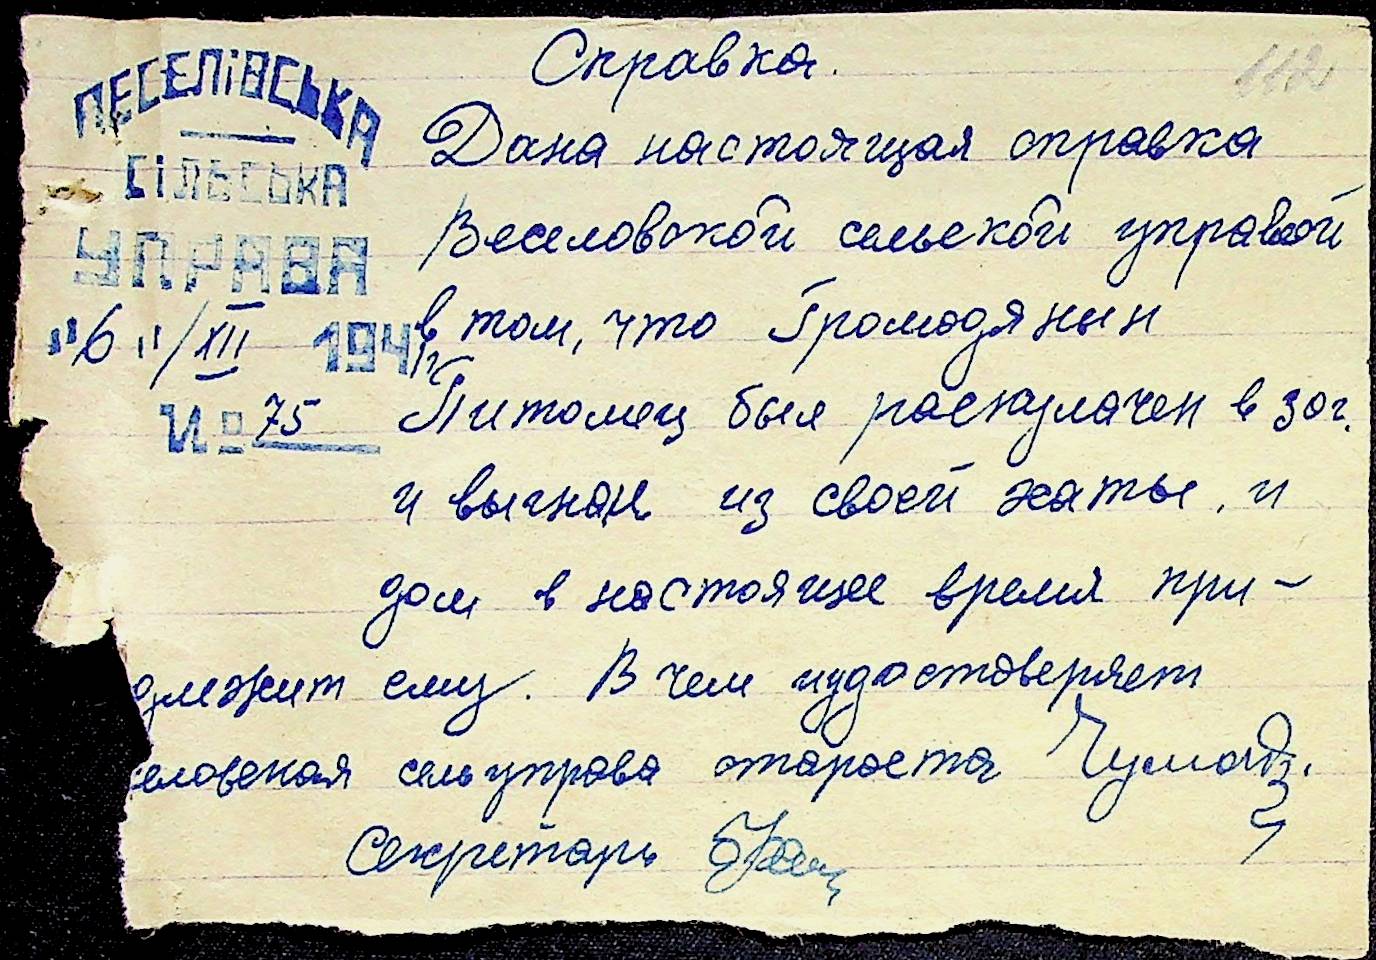 Справка.
112
ВЕСЕЛІВСЬКА
СІЛЬСЬКА
УПРАВА
"6"/XII 194
№ 75
Дана настоящая справка
Веселовской сельской управой
в том, что Громодянин
Питомец был раскулачен в 30г.
и выгнан из своей хаты, и
дом в настоящее время при-
длежит ему. В чем иудостоверяет
еловская сельуправа староста
Секретарь